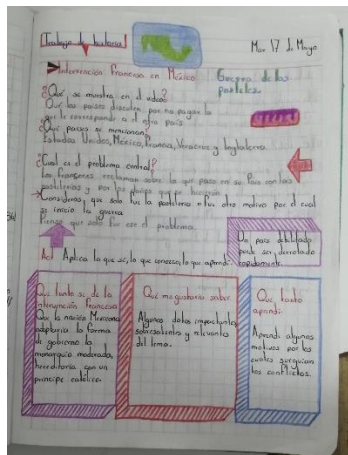 Trabajo de historia
Mar 17 de Mayo
Intervención Francesa en México
Guerra de los
pasteles.
¿Qué se muestra en el video?
Que los países discuten por no pagar lo
que le corresponde a el otro país.
¿Qué países se mencionan?
Estados Unidos, México, Francia, Veracruz y Inglaterra.
¿Cual es el problema central?
Los franceses, reclaman sobre lo que paso en su País con las
pastelerías y por los
Consideras, que solo fue la pastelería o fue otro motivo por el cual
se inicio la guerra
Pienso que solo fue ese el problema.
Un país debilitado
puede ser derrotado
rapidamente.
Act Aplica lo que sé, lo que conozco, lo que aprendí.
Que tanto sé de la
intervención francesa
Que la nación Mexicana
adoptaría la forma
de gobierno la
monarquía moderada,
hereditaria con un
príncipe católico.
Que me gustaría saber
Algunos datos impactantes,
sobresalientes y relevantes
del tema.
Que tanto
aprendí
Aprendí algunos
motivos por los
cuales surguian
los conflictos.